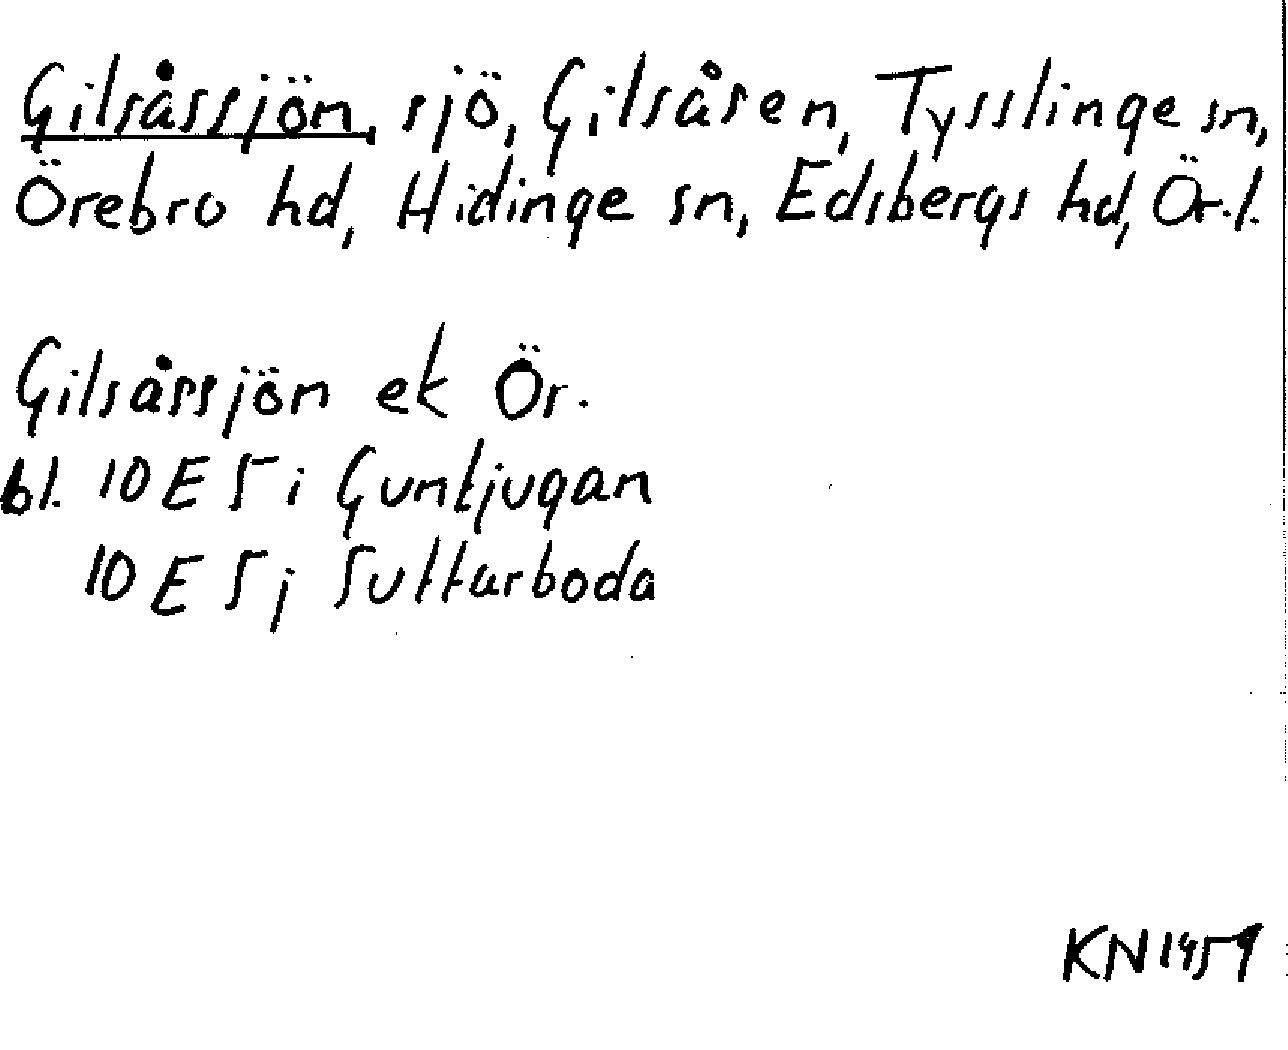 Gilsåssjön, sjö, Gilsåsen, Tysslinge sn,
Örebro hd, Hidinge sn, Edsbergs hd, Ör. l.
Gilsåssjön ek Ör.
bl. 10 E 5 i Guntjugan
10 E 5 j Suttarboda
KN1459